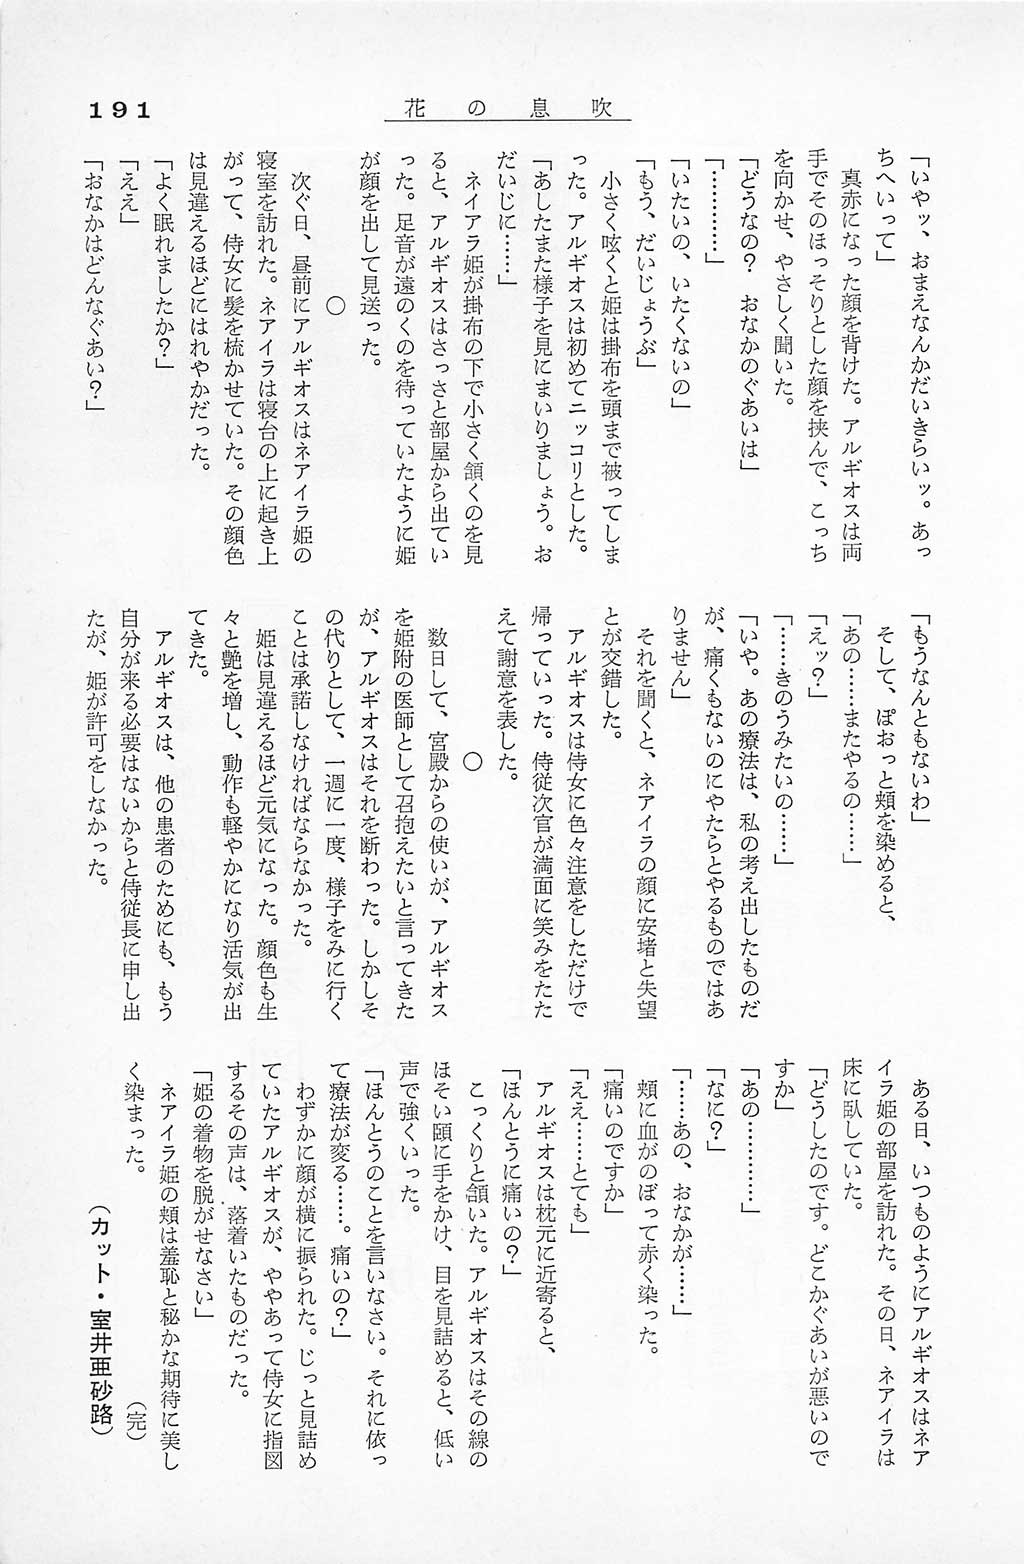 191
花の息吹
「いやッ、おまえなんかだいきらいッ。あっ
ちへいって」
真赤になった顔を背けた。アルギオスは両
手でそのほっそりとした顔を挟んで、こっち
を向かせ、やさしく聞いた。
「どうなの？　おなかのぐあいは」
「…………」
「いたいの、いたくないの」
「もう、だいじょうぶ」
小さく呟くと姫は掛布を頭まで被ってしま
った。アルギオスは初めてニッコリとした。
「あしたまた様子を見にまいりましょう。お
だいじに……」
ネイアラ姫が掛布の下で小さく頷くのを見
ると、アルギオスはさっさと部屋から出てい
った。足音が遠のくのを待っていたように姫
が顔を出して見送った。
○
次ぐ日、昼前にアルギオスはネアイラ姫の
寝室を訪れた。ネアイラは寝台の上に起き上
がって、侍女に髪を梳かせていた。その顔色
は見違えるほどにはれやかだった。
「よく眠れましたか？」
「ええ」
「おなかはどんなぐあい？」
「もうなんともないわ」
そして、ぽおっと頬を染めると、
「あの……またやるの……」
「えッ？」
「……きのうみたいの……」
「いや。あの療法は、私の考え出したものだ
が、痛くもないのにやたらとやるものではあ
りません」
それを聞くと、ネアイラの顔に安堵と失望
とが交錯した。
アルギオスは侍女に色々注意をしただけで
帰っていった。侍従次官が満面に笑みをたた
えて謝意を表した。
○
数日して、宮殿からの使いが、アルギオス
を姫附の医師として召抱えたいと言ってきた
が、アルギオスはそれを断わった。しかしそ
の代りとして、一週に一度、様子をみに行く
ことは承諾しなければならなかった。
姫は見違えるほど元気になった。顔色も生
々と艶を増し、動作も軽やかになり活気が出
てきた。
アルギオスは、他の患者のためにも、もう
自分が来る必要はないからと侍従長に申し出
たが、姫が許可をしなかった。
ある日、いつものようにアルギオスはネア
イラ姫の部屋を訪れた。その日、ネアイラは
床に臥していた。
「どうしたのです。どこかぐあいが悪いので
すか」
「あの…………」
「なに？」
「……あの、おなかが……」
頬に血がのぼって赤く染った。
「痛いのですか」
「ええ……とても」
アルギオスは枕元に近寄ると、
「ほんとうに痛いの？」
こっくりと頷いた。アルギオスはその線の
ほそい頤に手をかけ、目を見詰めると、低い
声で強くいった。
「ほんとうのことを言いなさい。それに依っ
て療法が変る……。痛いの？」
わずかに顔が横に振られた。じっと見詰め
ていたアルギオスが、ややあって侍女に指図
するその声は、落着いたものだった。
「姫の着物を脱がせなさい」
ネアイラ姫の頬は羞恥と秘かな期待に美し
く染まった。
（完）
（カット・室井亜砂路）